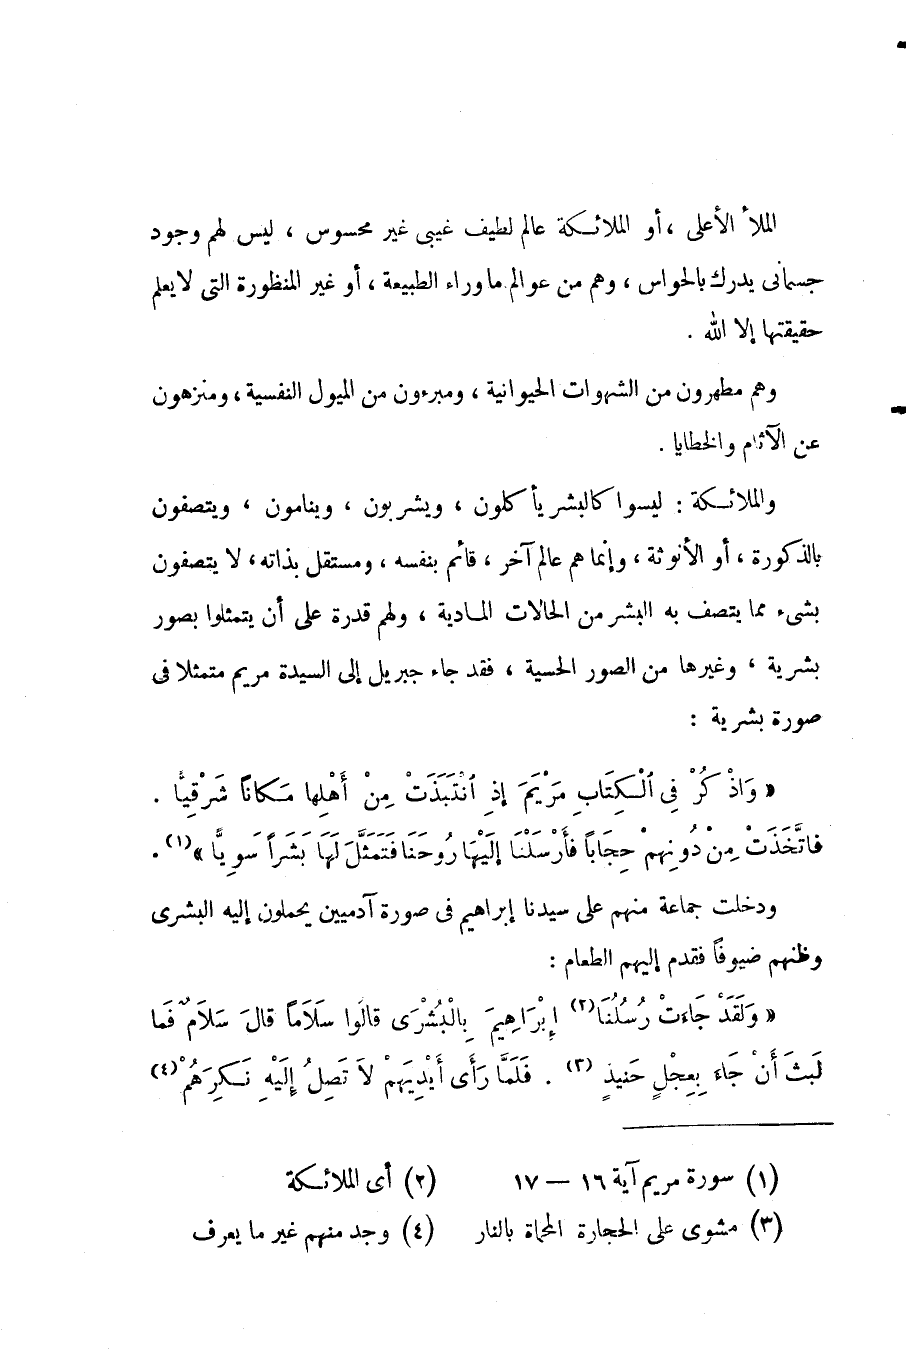 الملأ الأعلى ، أو الملائكة عالم لطيف غيبى غير محسوس ، ليس لهم وجود
جسمانى يدرك بالحواس ، وهم من عوالم ما وراء الطبيعة ، أو غير المنظورة التى لا يعلم
حقيقتها إلا الله .
وهم مطهرون من الشهوات الحيوانية ، ومبرءون من الميول النفسية ، ومنزهون
عن الآثام والخطايا .
والملائكة : ليسوا كالبشر يأكلون ، ويشربون ، وينامون ، ويتصفون
بالذكورة ، أو الأنوثة ، وإنما هم عالم آخر ، قائم بنفسه ، ومستقل بذاته ، لا يتصفون
بشىء مما يتصف به البشر من الحالات المادية ، ولهم قدرة على أن يتمثلوا بصور
بشرية ، وغيرها من الصور الحسية ، فقد جاء جبريل إلى السيدة مريم متمثلا فى
صورة بشرية :
« وَاذْكُرْ فِى ٱلْكِتَابِ مَرْيَمَ إِذِ ٱنْتَبَذَتْ مِنْ أَهْلِها مَكاناً شَرْقِيًّا .
فاتَّخَذَتْ مِنْ دُونِهِمْ حِجَاباً فأَرْسَلْنَا إِلَيْهَا رُوحَنَا فَتَمَثَّلَ لَهَا بَشَراً سَوِيًّا »(١) .
ودخلت جماعة منهم على سيدنا إبراهيم فى صورة آدميين يحملون إليه البشرى
وظنهم ضيوفاً فقدم إليهم الطعام :
« وَلَقَدْ جَاءَتْ رُسُلُنَا(٢) إِبْرَاهِيمَ بِالْبُشْرَى قالُوا سَلَاماً قالَ سَلَامٌ فَما
لَبِثَ أَنْ جَاءَ بِعِجْلٍ حَنِيذٍ (٣) . فَلَمَّا رَأَى أَيْدِيَهِمْ لاَ تَصِلُ إِلَيْهِ نَكِرَهُمْ(٤)
(١) سورة مريم آية ١٦ — ١٧ (٢) أى الملائكة
(٣) مشوى على الحجارة المحماة بالنار (٤) وجد منهم غير ما يعرف